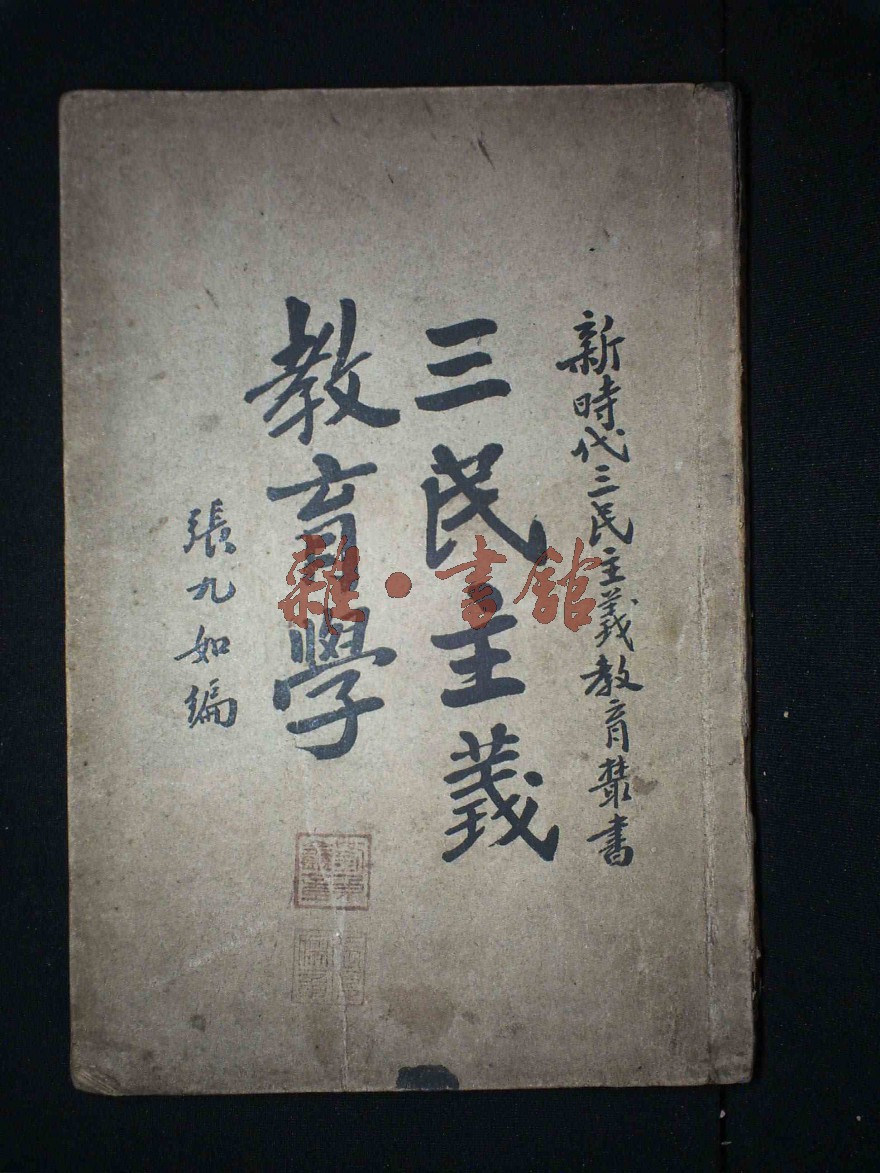 新時代三民主義教育叢書
三民主義
教育學
張九如編
雜·書館